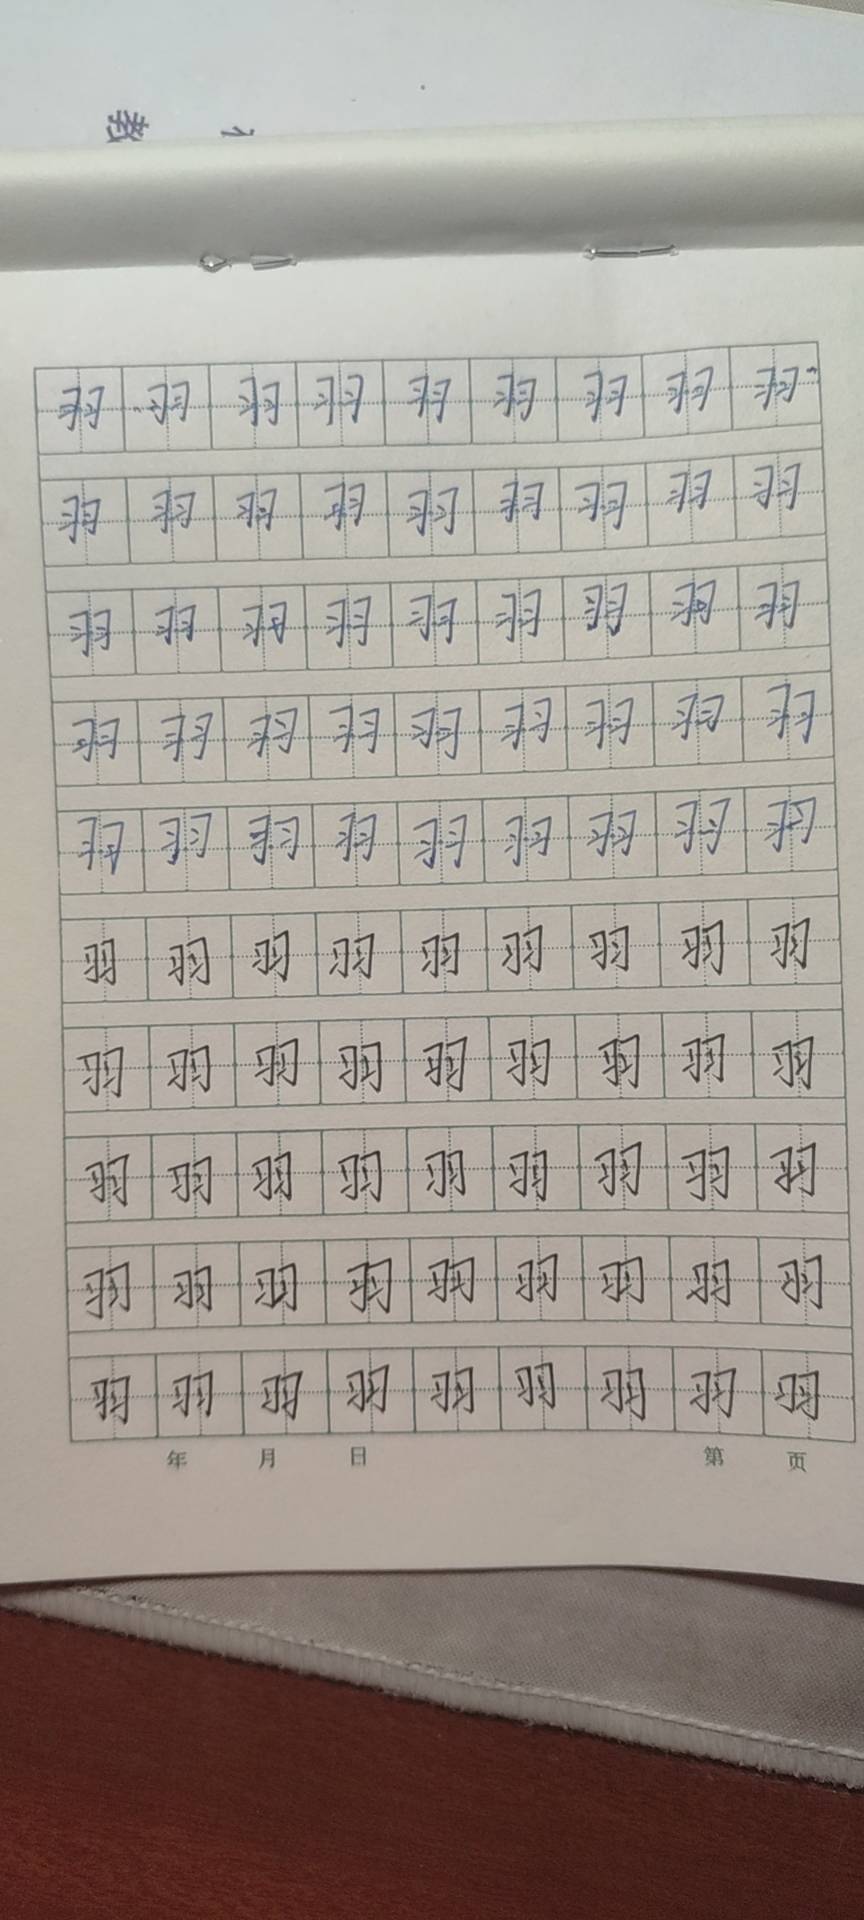 教
羽羽羽羽羽羽羽羽羽
羽羽羽羽羽羽羽羽羽
羽羽羽羽羽羽羽羽羽
羽羽羽羽羽羽羽羽羽
羽羽羽羽羽羽羽羽羽
羽羽羽羽羽羽羽羽羽
羽羽羽羽羽羽羽羽羽
羽羽羽羽羽羽羽羽羽
羽羽羽羽羽羽羽羽羽
羽羽羽羽羽羽羽羽羽
年 月 日 第 页